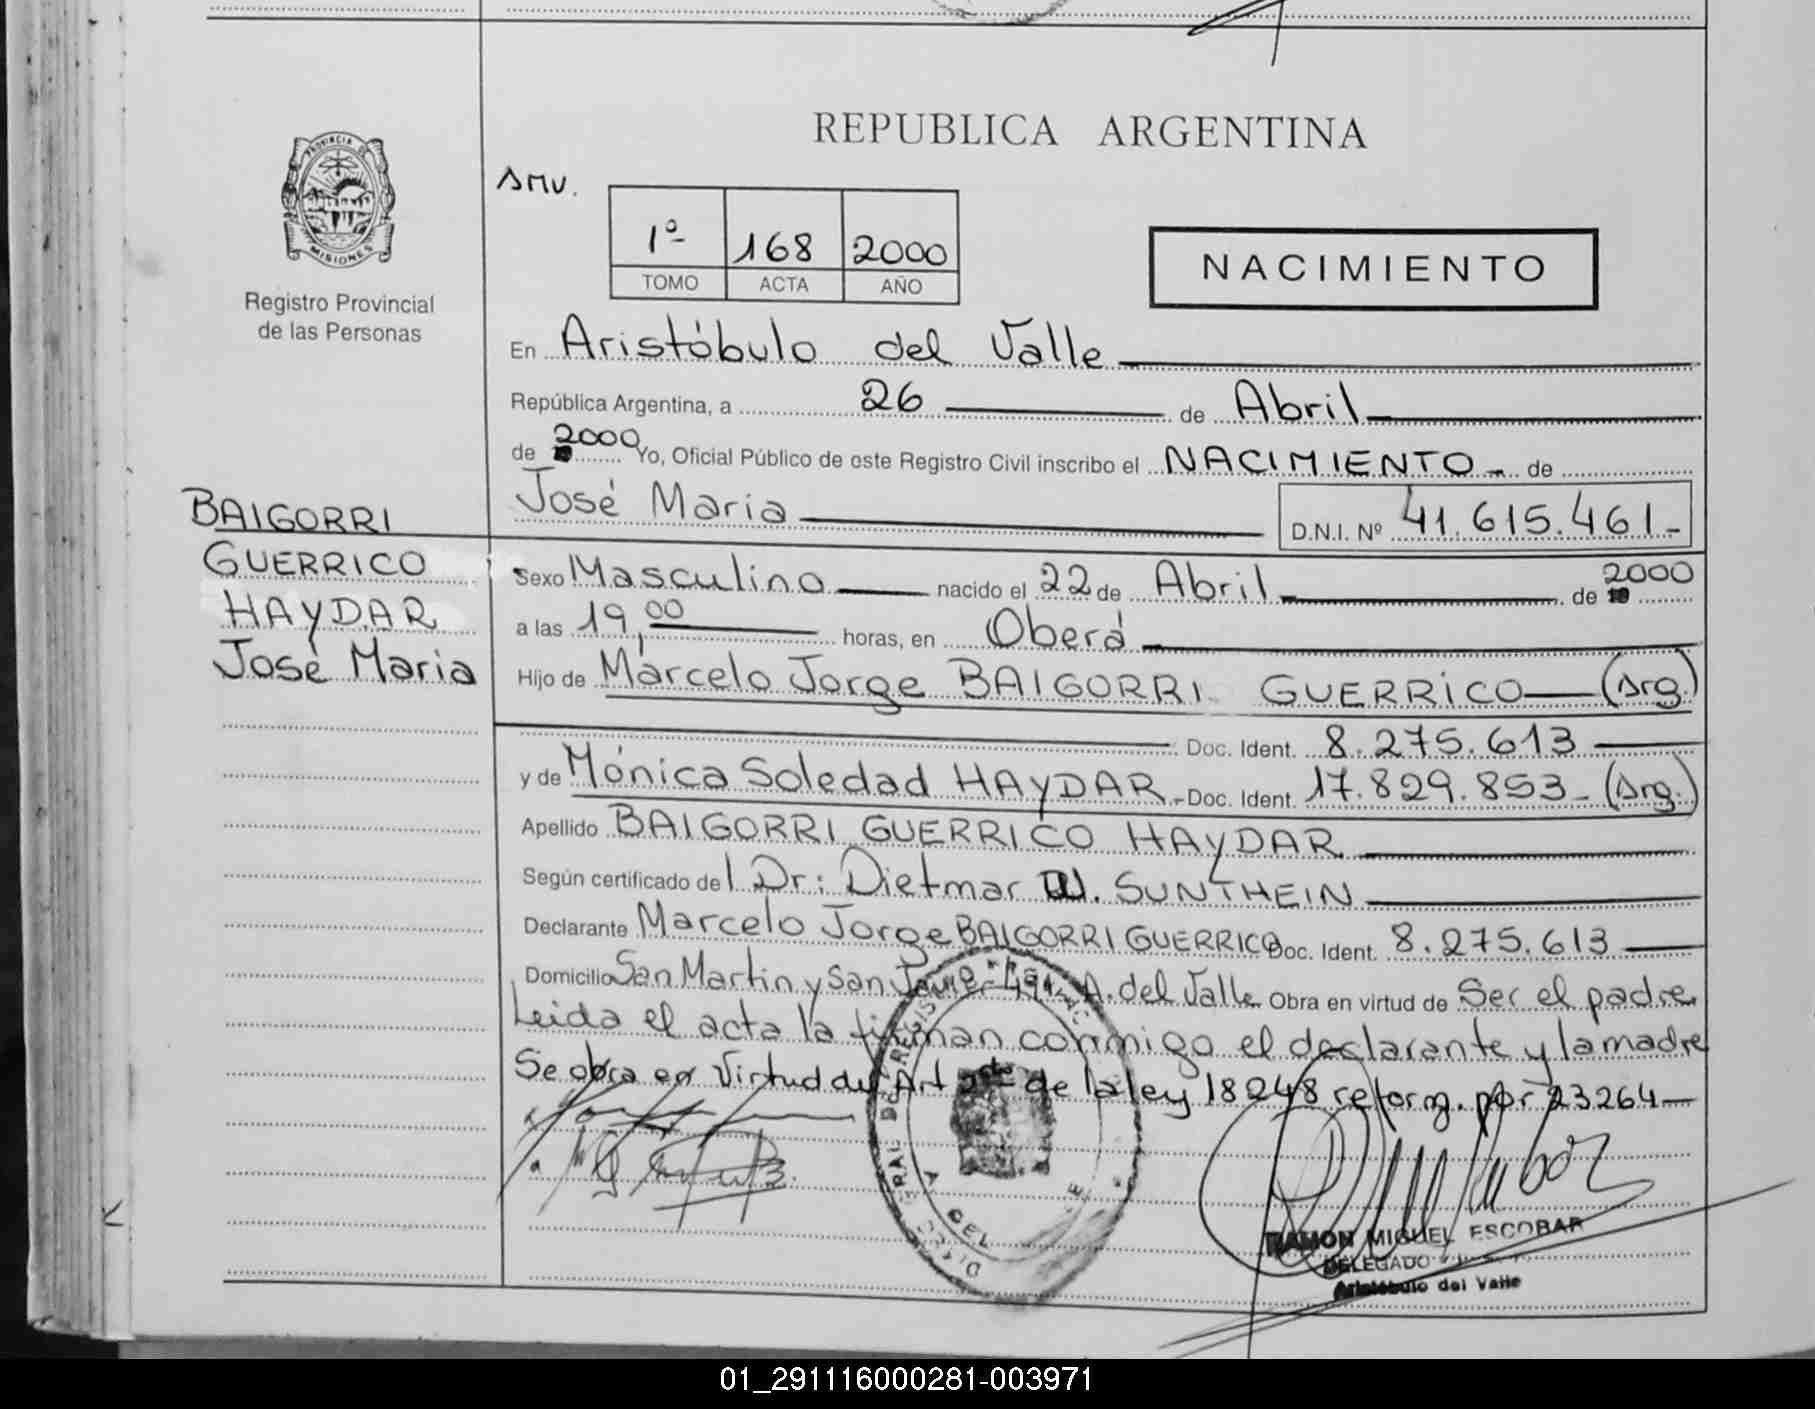 REPUBLICA ARGENTINA
PROVINCIA DE
MISIONES
Registro Provincial
de las Personas
1º 168 2000
TOMO ACTA AÑO
NACIMIENTO
En Aristóbulo del Valle
República Argentina, a 26 de Abril
de 2000 Yo, Oficial Público de este Registro Civil inscribo el NACIMIENTO de
José Maria D.N.I. Nº 41.615.461-
BAIGORRI
GUERRICO
HAYDAR
José Maria
Sexo Masculino nacido el 22 de Abril de 2000
a las 19,00 horas, en Oberá
Hijo de Marcelo Jorge BAIGORRI GUERRICO (Arg.)
Doc. Ident. 8.275.613
y de Mónica Soledad HAYDAR.- Doc. Ident. 17.829.853- (Arg.)
Apellido BAIGORRI GUERRICO HAYDAR
Según certificado del Dr: Dietmar W. SUNTHEIN
Declarante Marcelo Jorge BAIGORRI GUERRICO Doc. Ident. 8.275.613
Domicilio San Martin y San Javier A. del Valle Obra en virtud de Ser el padre
Leida el acta la firman conmigo el declarante y la madre
Se obra en Virtud del Art de la ley 18248 reform. por 23264
RAMON MIGUEL ESCOBAR
DELEGADO
Aristóbulo del Valle
01_291116000281-003971